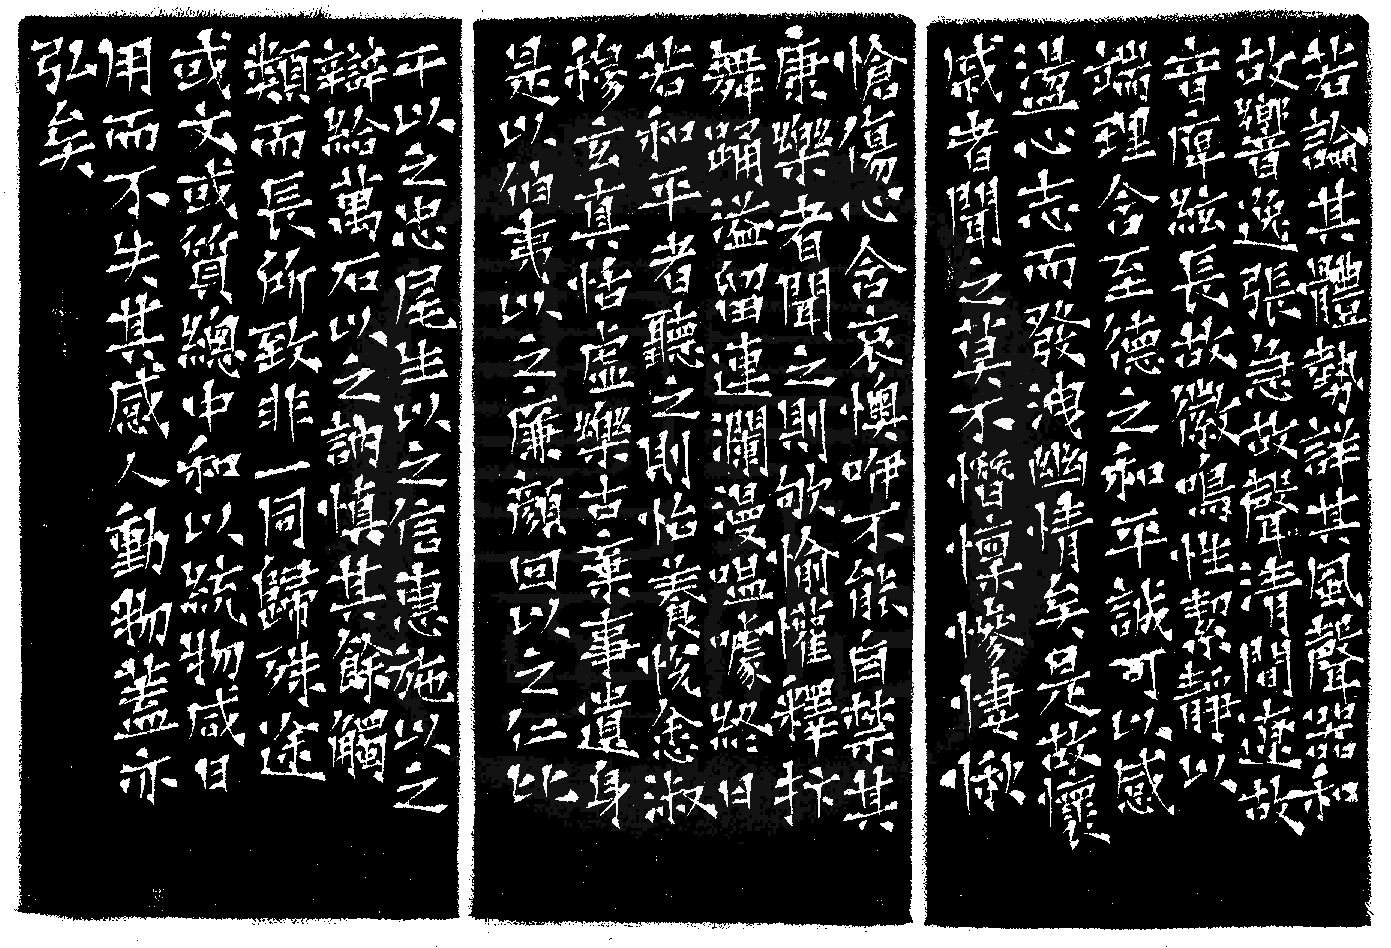 若論其體勢詳其風聲器和
故響逸張急故聲清閒遼故
音庳絃長故徽鳴性絜靜以
端理含至德之和平誠可以感
盪心志而發洩幽情矣是故懷
戚者聞之莫不憯懍慘悽愀
愴傷心含哀懊咿不能自禁其
康樂者聞之則欨愉懽釋抃
舞踊溢留連瀾漫嗢噱終日
若和平者聽之則怡養悅悆淑
穆玄真恬虛樂古棄事遺身
是以伯夷以之廉顏回以之仁比
干以之忠尾生以之信惠施以之
辯給萬石以之訥慎其餘觸
類而長所致非一同歸殊途
或文或質總中和以統物咸日
用而不失其感人動物蓋亦
弘矣